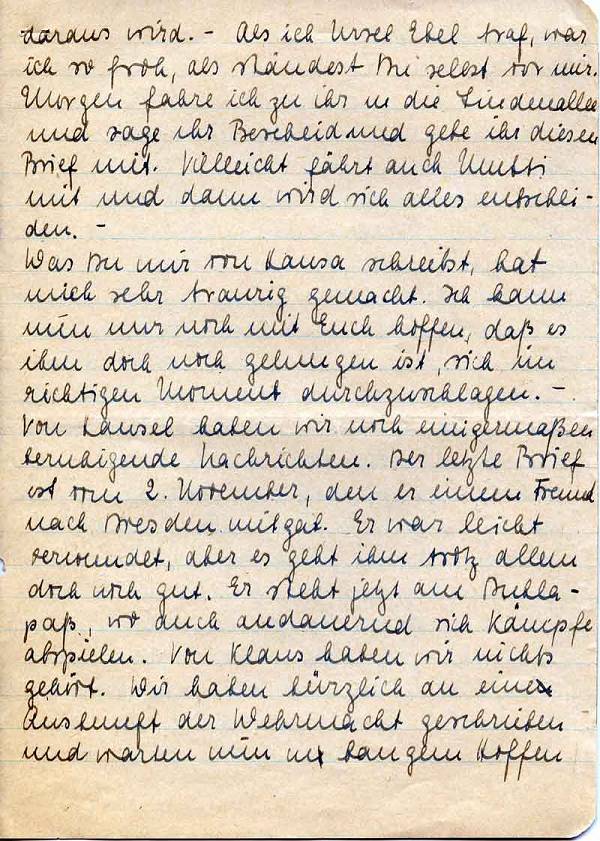 daraus wird. - Als ich Ursel Ebel traf, war
ich so froh, als ständest Du selbst vor mir.
Morgen fahre ich zu ihr in die Lindenallee
und sage ihr Bescheid und gebe ihr diesen
Brief mit. Villeicht fährt auch Mutti
mit und dann wird sich alles entschei-
den. -
Was Du mir von Hansa schreibst, hat
mich sehr traurig gemacht. Ich kann
nun nur noch mit Euch hoffen, daß es
ihm doch noch gelungen ist, sich im
richtigen Moment durchzuschlagen. -
Von Hansel haben wir noch einigermaßen
beruhigende Nachrichten. Der letzte Brief
ist vom 2. November, den er einem Freund
nach Dresden mitgab. Er war leicht
verwundet, aber es geht ihm trotz allem
doch noch gut. Er steht jetzt am Dukla-
paß, wo auch andauernd sich Kämpfe
abspielen. Von Klaus haben wir nichts
gehört. Wir haben kürzlich an eine
Auskunft der Wehrmacht geschrieben
und warten nun in bangem Hoffen